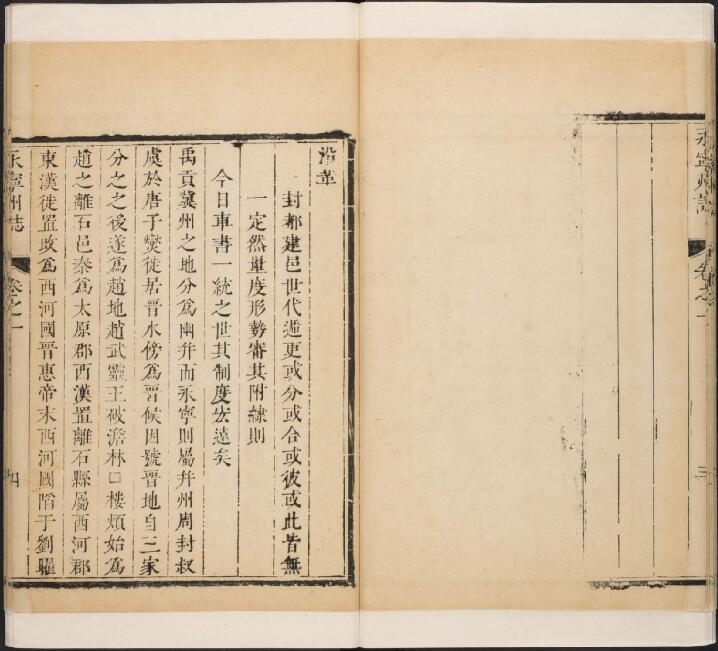 永寧州誌
卷之一
三
沿革
封都建邑世代遞更或分或合或彼或此皆無
一定然量度形勢審其附隸則
今日車書一統之世其制度宏遠矣
禹貢冀州之地分爲幽并而永寧則屬并州周封叔
虞於唐子燮徙居晉水傍爲晉候因號晉地自三家
分之之後遂爲趙地趙武靈王破澹林口樓煩始爲
趙之離石邑秦爲太原郡西漢置離石縣屬西河郡
東漢徙置改爲西河國晉惠帝末西河國陷于劉曜
永寧州誌
卷之一
四